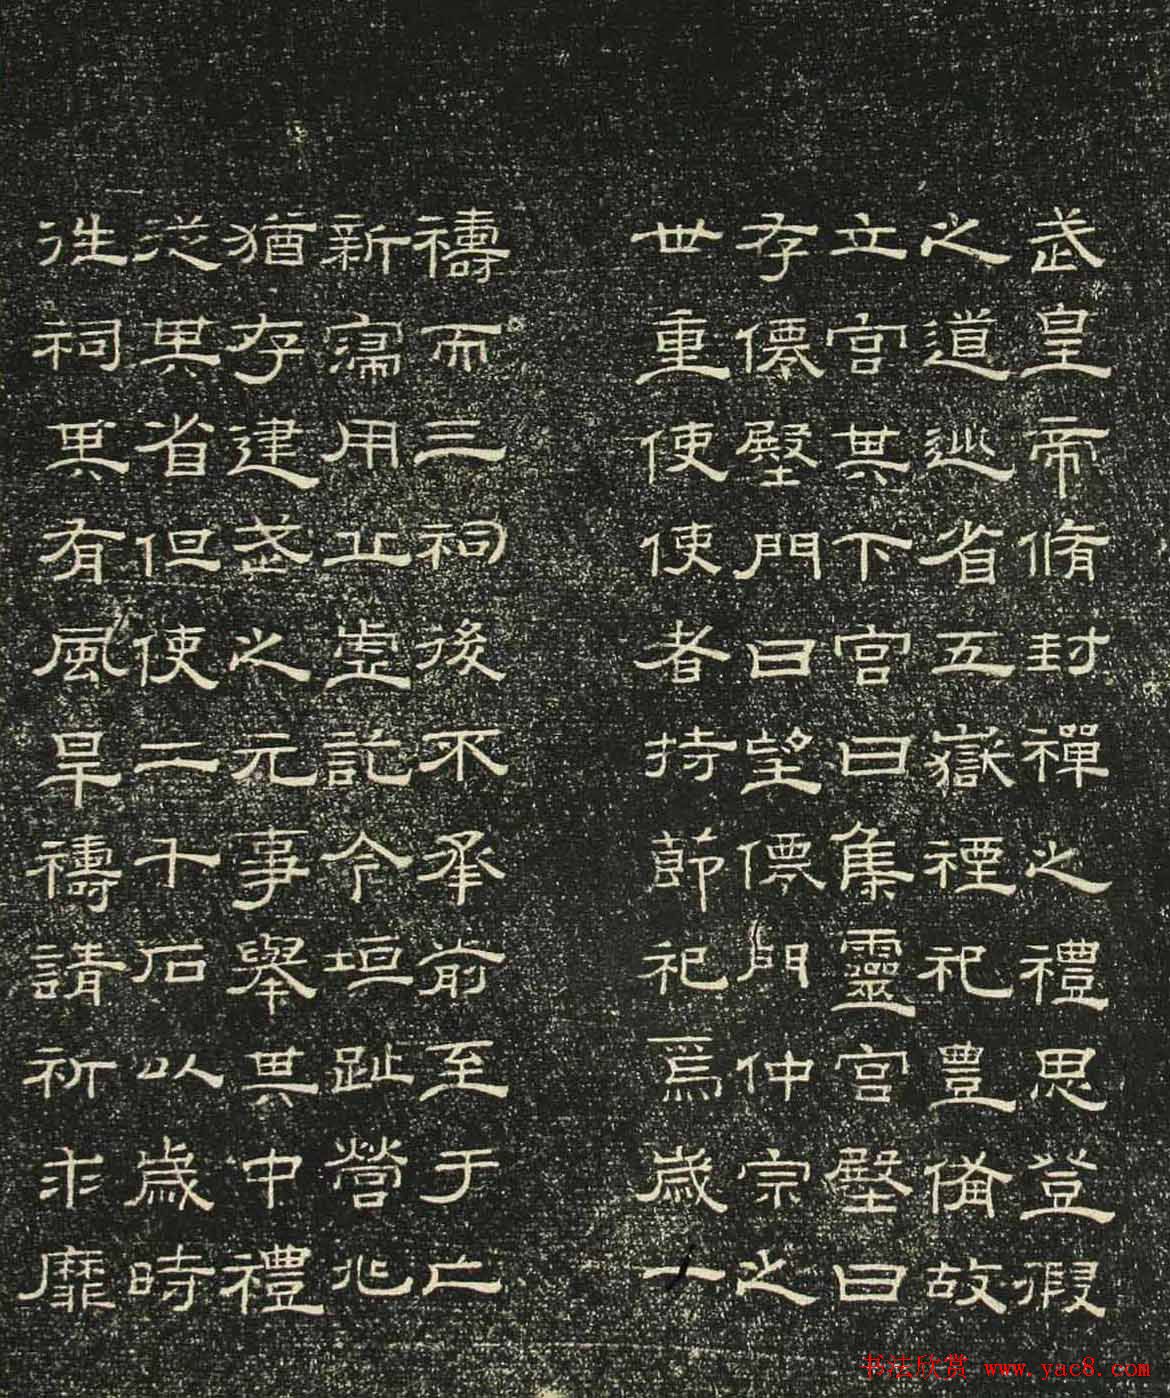 武皇帝脩封禪之禮思登假
之道巡省五嶽禋祀豐備故
立宮其下宮曰集靈宮壂曰
存僊壂門曰望僊門仲宗之
世重使使者持節祀焉歲一
禱而三祠後不承前至于亡
新寖用丘虛訖今垣趾營兆
猶存建武之元事舉其中禮
從其省但使二千石以歲時
往祠其有風旱禱請祈求靡
书法欣赏 www.yac8.com